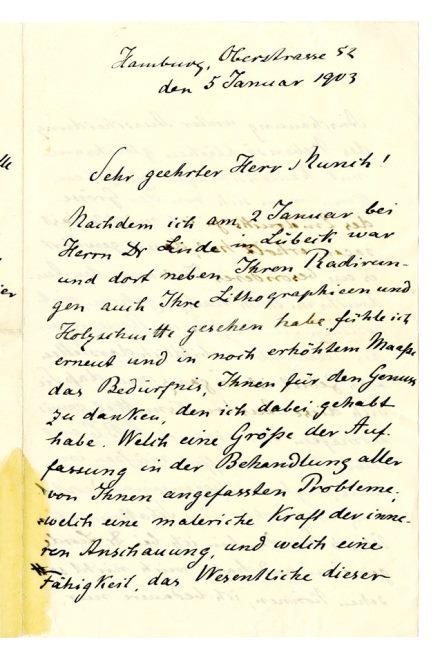 Hamburg, Oberstrasse 82
den 5 Januar 1903
Sehr geehrter Herr Munch!
Nachdem ich am 2 Januar bei
Herrn Dr Linde in Lübeck war
und dort neben Ihren Radirun-
gen auch Ihre Lithographieen und
Holzschnitte gesehen habe, fühle ich
erneut und in noch erhöhtem Maaße
das Bedürfnis, Ihnen für den Genuss
zu danken, den ich dabei gehabt
habe. Welch eine Größe der Auf-
fassung in der Behandlung aller
von Ihnen angefassten Probleme,
welch eine malerische Kraft der inne-
ren Anschauung, und welch eine
Fähigkeit, das Wesentliche dieser